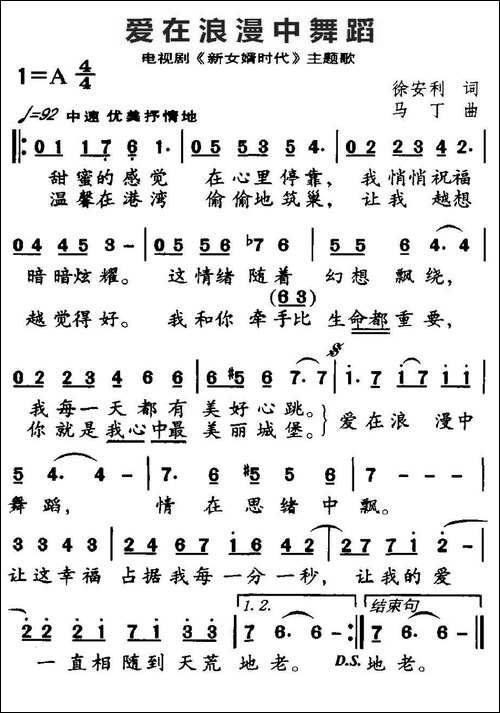 爱在浪漫中舞蹈
电视剧《新女婿时代》主题歌
1=A 4/4
徐安利 词
马丁 曲
♩=92 中速 优美抒情地
0 1 1 7 6 1· | 0 5 5 3 5 4· | 0 2 2 3 4 2· |
甜蜜的感觉 在心里停靠， 我悄悄祝福
温馨在港湾 偷偷地筑巢， 让我 越想
0 4 4 5 3 - | 0 5 5 6 ♭7 6 | 0 5 5 6 4· 4 |
暗暗炫耀。 这情绪随着 幻想 飘绕，
(6 3)
越觉得好。 我和你 牵手比 生命都重要，
0 2 2 3 4 6 6 | 6 ♯5 5 6 7· 7 | 1· 7 1 7 1 1 |
我每一天都有 美好心跳。
你就是我心中最 美丽城堡。
爱在浪 漫中
5 4· 4 - | 7· 6 ♯5 6 5 6 | 7 - - - |
舞蹈， 情在思绪中飘。
3 3 4 3 3 3 | 2 4 6 7 1 6 4 2 | 0 2 2 7 1 1 |
让这幸福 占据我每一分一秒， 让我的爱
2 2 2 1 7 6 7 5 | 7 6· 6 - | 7 6· 6 -
1. 2.
结束句
一直相随到天荒 地老。 D.S. 地老。